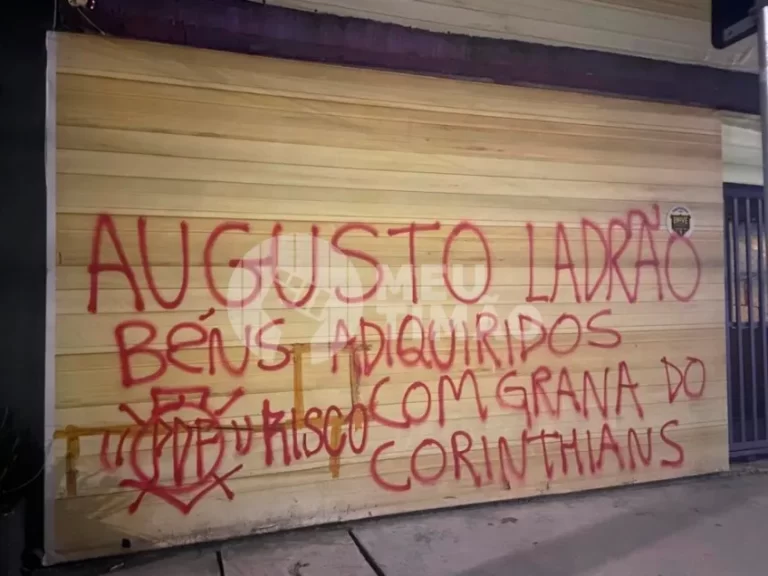 AUGUSTO LADRÃO
BÉNS ADIQUIRIDOS
COM GRANA DO
"PDP" RISCO
CORINTHIANS
MEU
TIMÃO